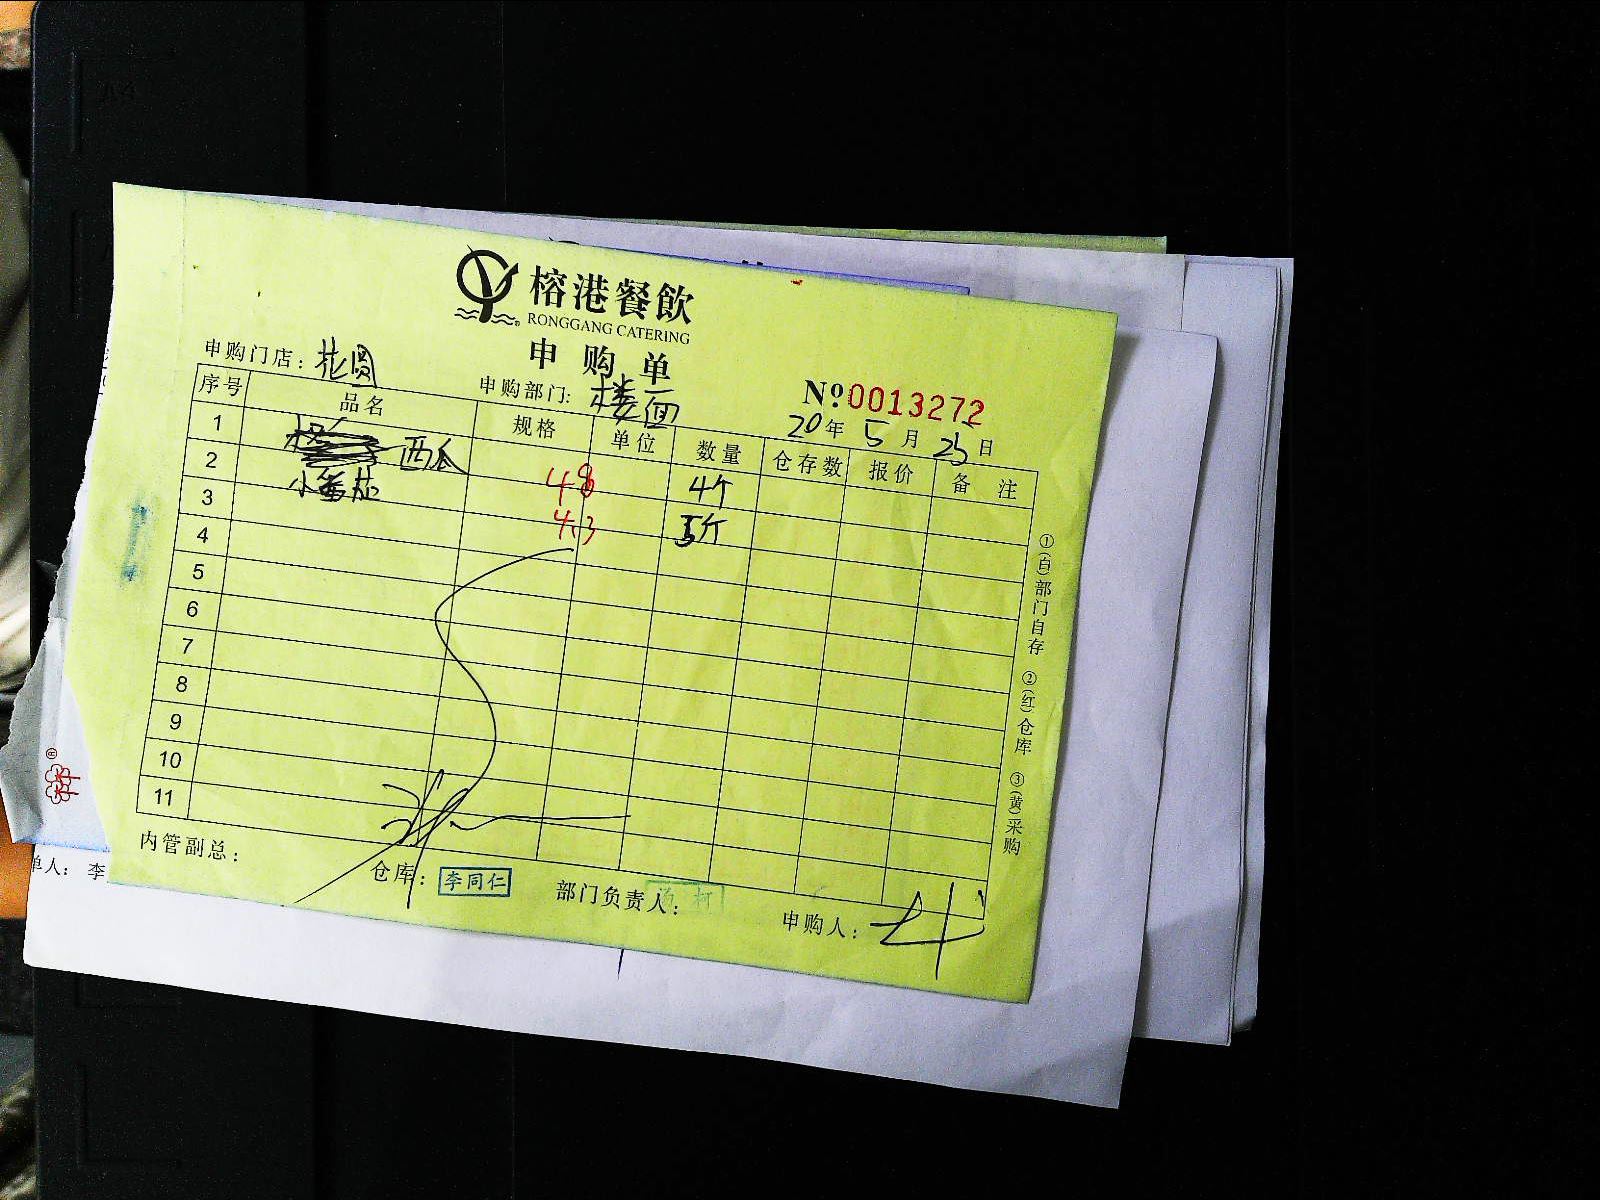 榕港餐飲
RONGGANG CATERING
申购单
申购门店：花园
申购部门：楼面
№0013272
20年5月25日
序号 品名 规格 单位 数量 仓存数 报价 备注
1 西瓜 48 4个
2 小番茄 4.3 5个
3
4
5
6
7
8
9
10
11
①(白)部门自存 ②(红)仓库 ③(黄)采购
内管副总：
仓库：李同仁
部门负责人：
申购人：
单人：李